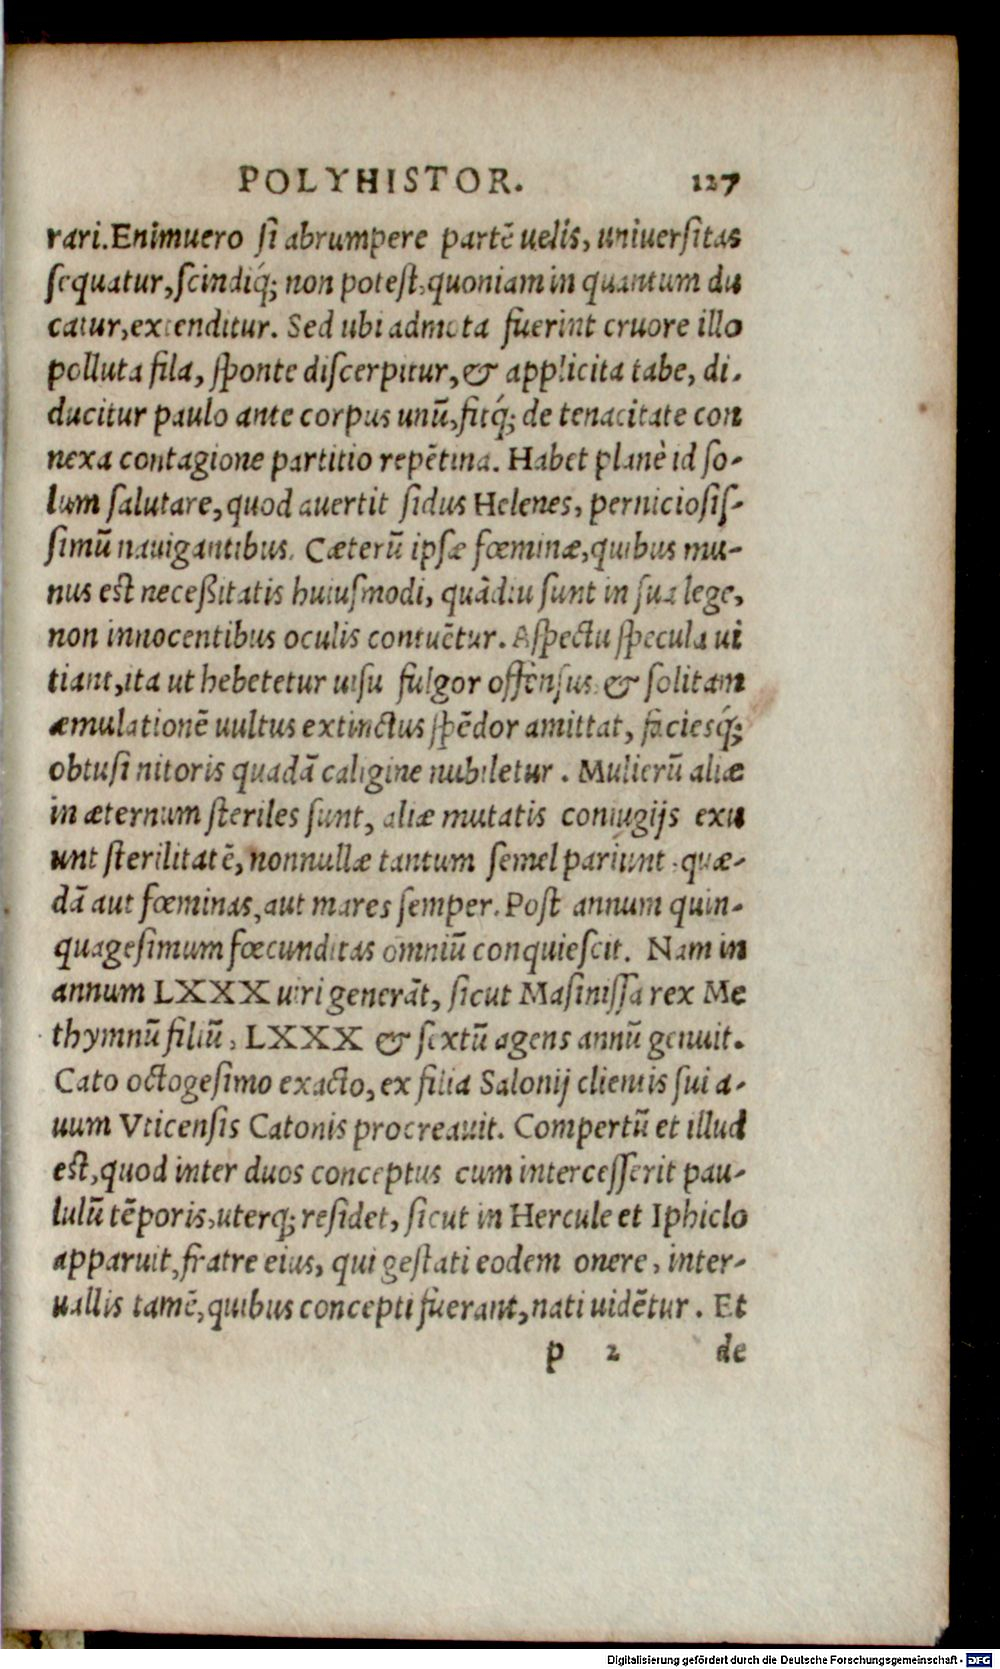 POLYHISTOR. 127
rari. Enimuero si abrumpere partē uelis, uniuersitas
sequatur, scindiq́; non potest, quoniam in quantum du
catur, extenditur. Sed ubi admota fuerint cruore illo
polluta fila, sponte discerpitur, & applicita tabe, di-
ducitur paulo ante corpus unū, fitq́; de tenacitate con
nexa contagione partitio repētina. Habet planè id so-
lum salutare, quod auertit sidus Helenes, perniciosis-
simū nauigantibus. Cæterū ipsæ fœminæ, quibus mu-
nus est neceßitatis huiusmodi, quādiu sunt in sua lege,
non innocentibus oculis contuētur. Aspectu specula ui
tiant, ita ut hebetetur uisu fulgor offensus & solitam
æmulationē uultus extinctus spēdor amittat, faciesq́;
obtusi nitoris quadā caligine nubiletur. Mulierū aliæ
in æternum steriles sunt, aliæ mutatis coniugijs exu
unt sterilitatē, nonnullæ tantum semel pariunt: quæ-
dā aut fœminas, aut mares semper. Post annum quin-
quagesimum fœcunditas omniū conquiescit. Nam in
annum LXXX uiri generāt, sicut Masinissa rex Me
thymnū filiū, LXXX & sextū agens annū genuit.
Cato octogesimo exacto, ex filia Salonij clientis sui a-
uum Vticensis Catonis procreauit. Compertū et illud
est, quod inter duos conceptus cum intercesserit pau-
lulū tēporis, uterq; residet, sicut in Hercule et Iphiclo
apparuit, fratre eius, qui gestati eodem onere, inter-
uallis tamē, quibus concepti fuerant, nati uidētur. Et
p 2 de
Digitalisierung gefördert durch die Deutsche Forschungsgemeinschaft - DFG